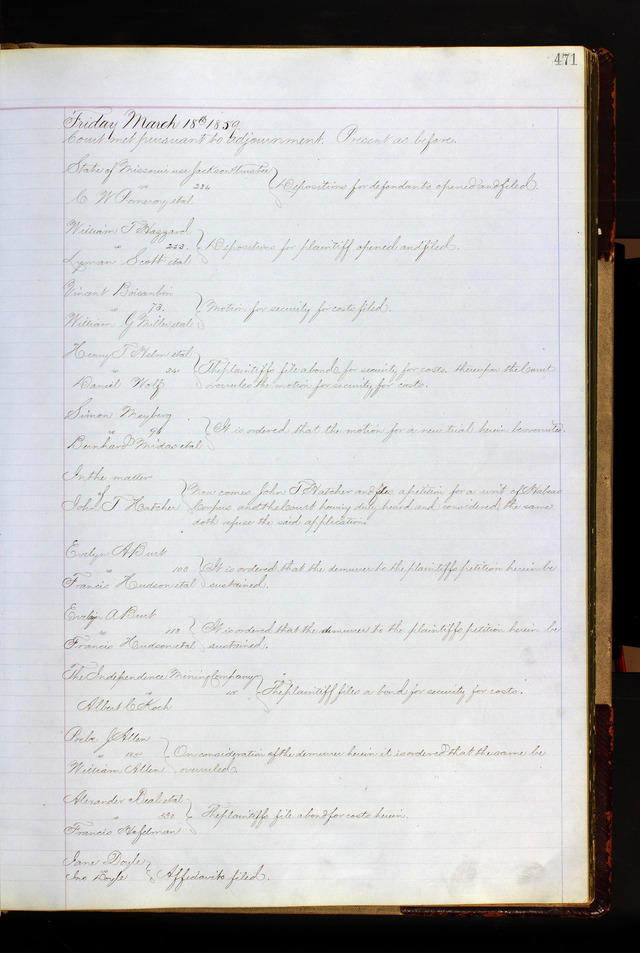 471
Friday March 18th 1859
Court met pursuant to adjournment. Present as before.
State of Missouri use Jackson
vs 224 Depositions for defendants opened and filed.
C W Pomeroy et al
William T Haggard
vs 253 Depositions for plaintiff opened and filed.
Lyman Scott et al
Vincent
vs 73 Motion for security for costs filed.
William G Miller et al
Henry T Helm et al
The plaintiffs file a bond for security for costs. thereupon the Court
vs 241
Daniel Wolf overrules the motion for security for costs.
Simon Meyberg
vs 98 It is ordered that the motion for a new trial herein be overruled.
Bernhard Midas et al
In the matter
of Now comes John T Hatcher and files a petition for a writ of Habeas
John T Hatcher Corpus and the Court having duly heard and considered the same
doth refuse the said application.
Evelyn A Burt
vs 180 It is ordered that the demurrer to the plaintiffs petition herein be
Francis Hudson et al sustained.
Evelyn A Burt
vs 183 It is ordered that the demurrer to the plaintiffs petition herein be
Francis Hudson et al sustained.
The Independence Mining Company
vs The plaintiff files a bond for security for costs.
Albert C Koch
J Allen
vs On consideration of the demurrer herein it is ordered that the same be
William Allen overruled.
Alexander Beal et al
vs The plaintiffs file a bond for costs herein.
Francis
Jane Doyle
Jno Doyle vs Affidavits filed.